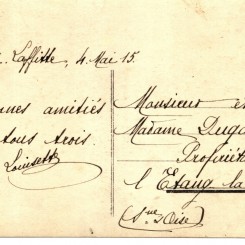 . Laffitte, 4 Mai 15.
nnes amitiés
tous trois.
Louisette
Monsieur e
Madame Duga
Propriéta
l'Etang la
(S.ne & Oise)